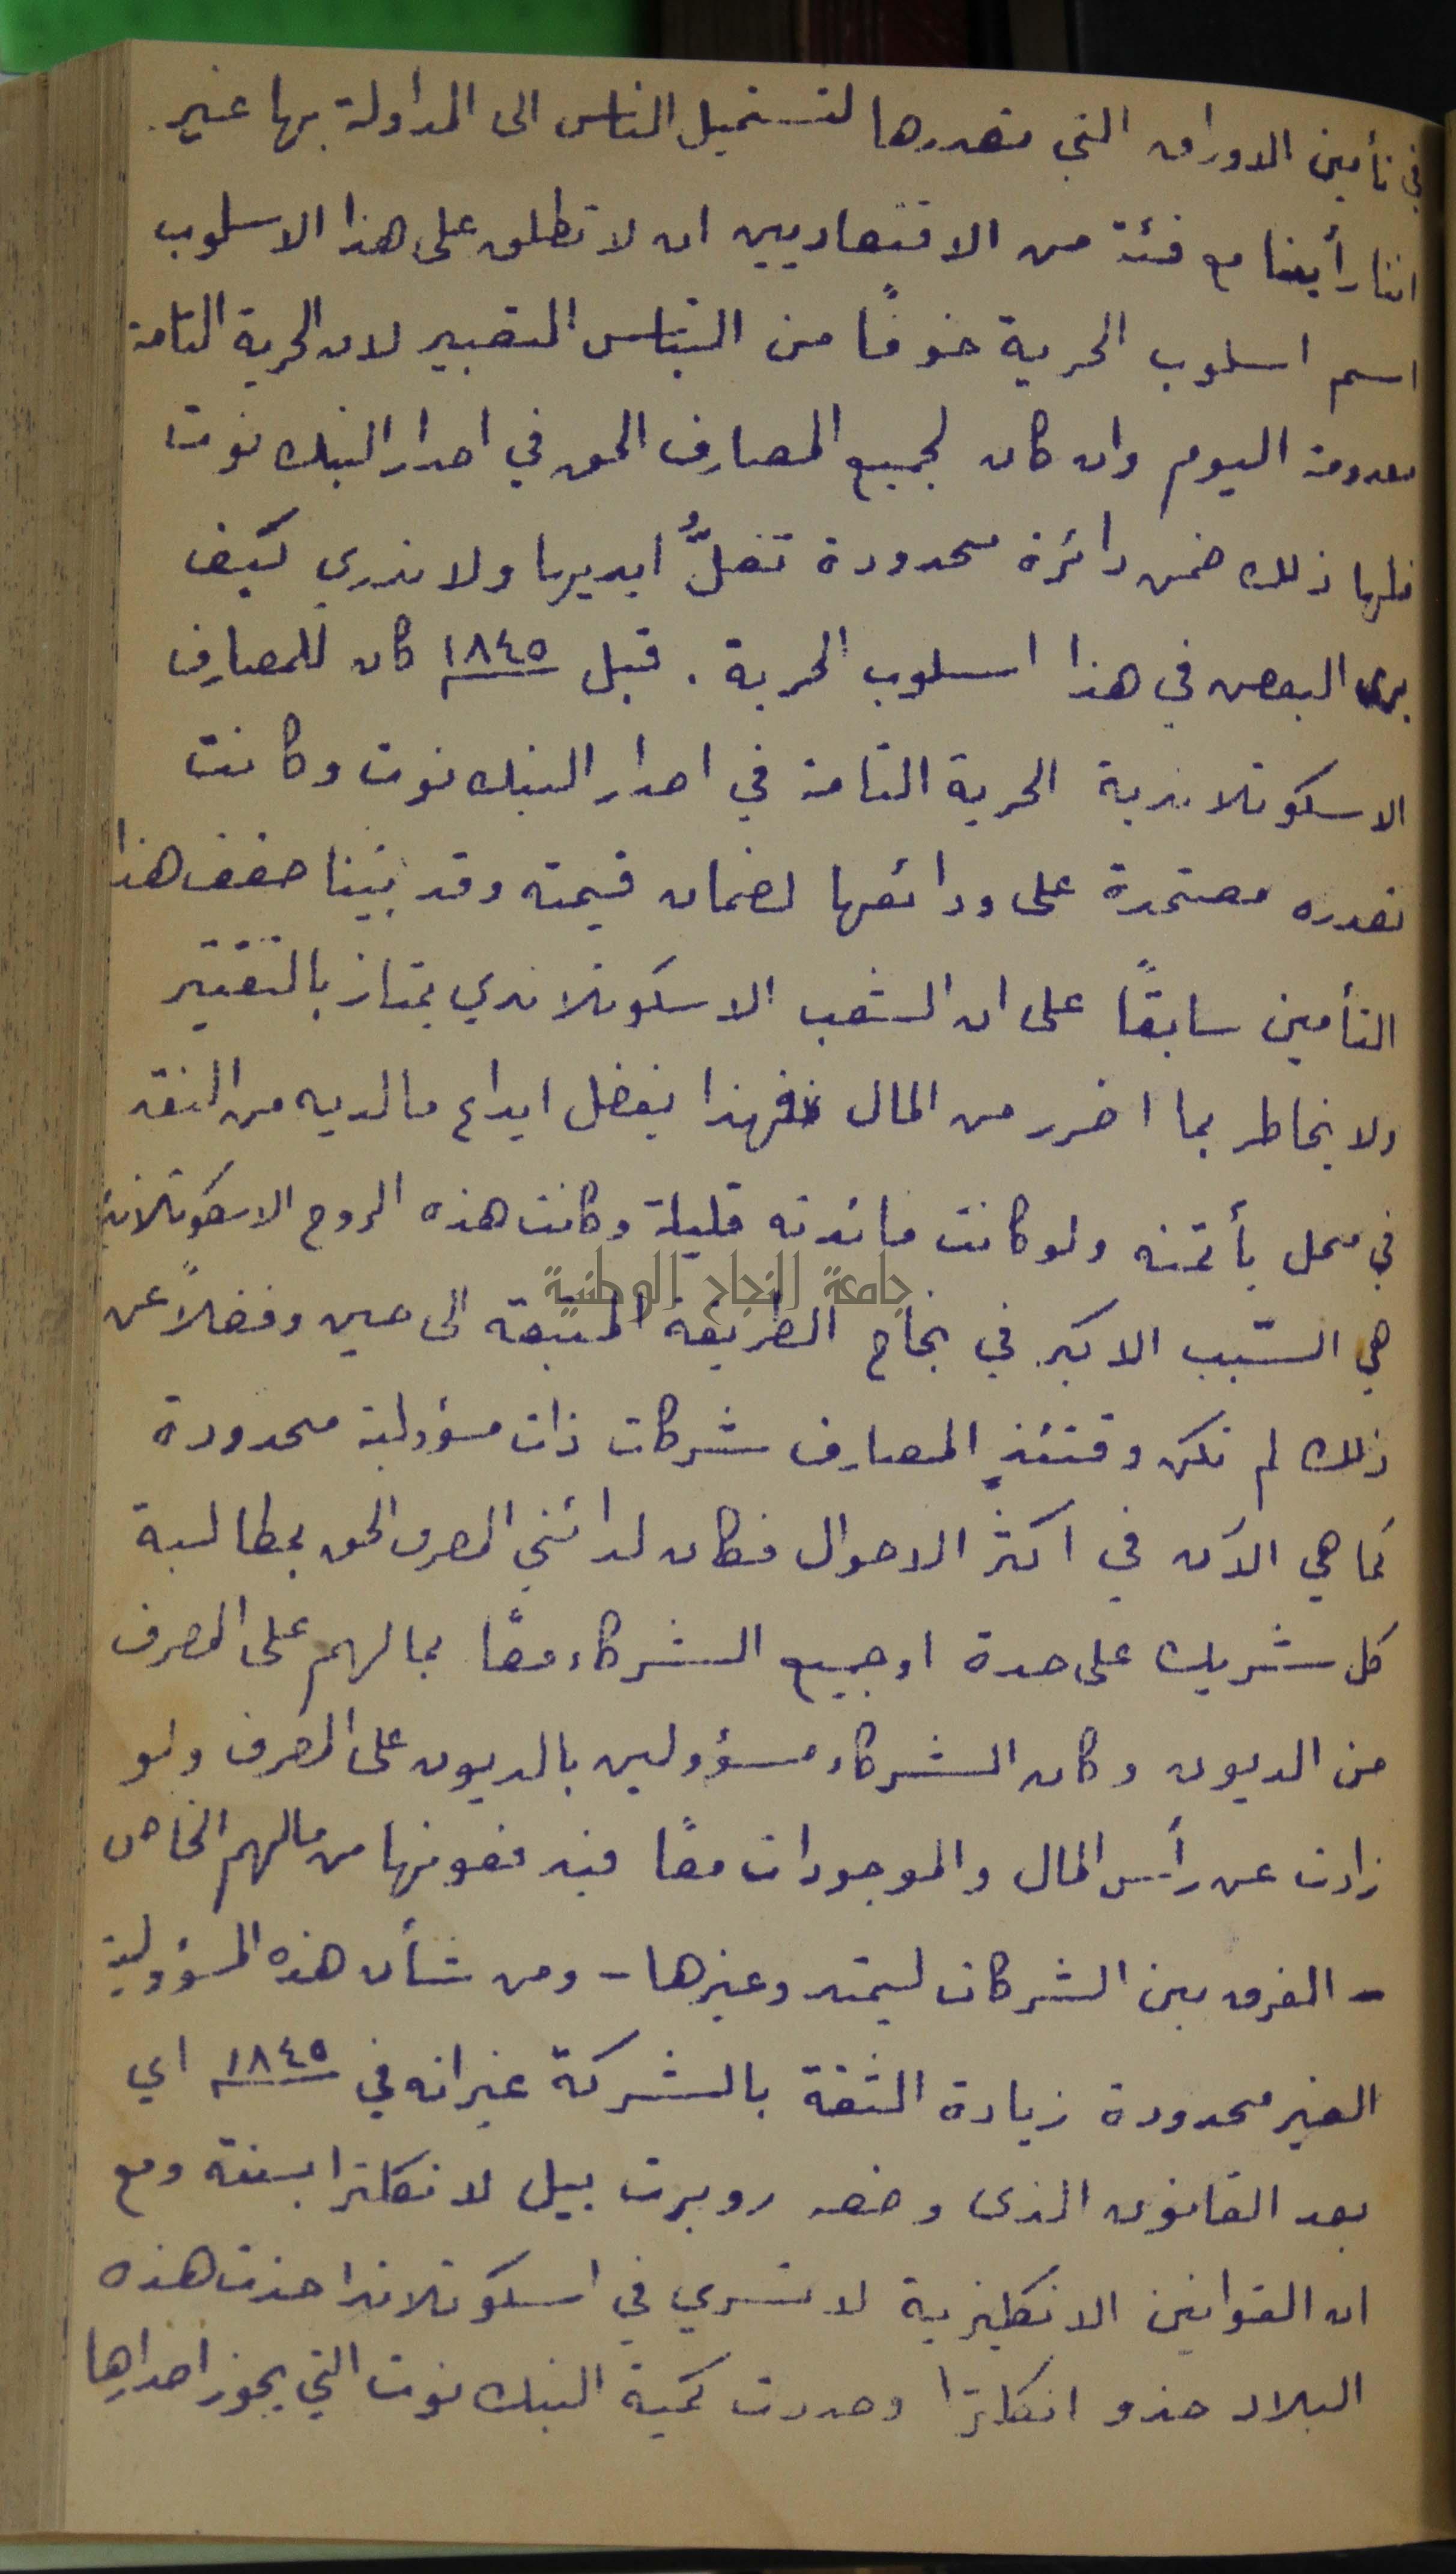 في تأمين الاوراق التي تصدرها لتستميل الناس الى المداولة بها غير
اننا رأينا مع فئة من الاقتصاديين ان لا نطلق على هذا الاسلوب
اسم اسلوب الحرية خوفًا من التباس التعبير لان الحرية التامة
معدومة اليوم وان كان لجميع المصارف الحق في اصدار البنك نوت
فلها ذلك ضمن دائرة محدودة تغلُّ ايديها ولا ندري كيف
يرى البعض في هذا اسلوب الحرية . قبل ١٨٤٥ كان للمصارف
الاسكوتلاندية الحرية التامة في اصدار البنك نوت وكانت
تصدره معتمدة على ودائعها لضمان قيمته وقد بيّنا ضعف هذا
التأمين سابقًا على ان الشعب الاسكوتلاندي يمتاز بالتقتير
ولا يخاطر بما اخرر من المال فهذا يفضل ايداع ما لديه من النقد
في محل يأتمنه ولو كانت فائدته قليلة وكانت هذه الروح الاسكوتلاندية
جامعة النجاح الوطنية
هي السّبب الاكبر في نجاح الطريقة المتبعة الى حين وفضلاً عن
ذلك لم تكن وقتئذٍ المصارف شركات ذات مسؤولية محدودة
كما هي الآن في اكثر الاحوال فكان لدائني المصرف الحق بمطالبة
كل شريك على حدة او جميع الشركاء معًا بما لهم على المصرف
من الديون وكان الشركاء مسؤولين بالديون على المصرف ولو
زادت عن رأس المال والموجودات معًا فيدفعونها من مالهم الخاص
- الفرق بين الشركات ليمتد وغيرها - ومن شأن هذه المسؤولية
الغير محدودة زيادة الثقة بالشركة غير انه في ١٨٤٥ اي
بعد القانون الذى وضعه روبرت بيل لانكلترا بسنة ومع
ان القوانين الانكليزية لا تسري في اسكوتلاندا حذت هذه
البلاد حذو انكلترا وحددت كمية البنك نوت التي يجوز اصدارها